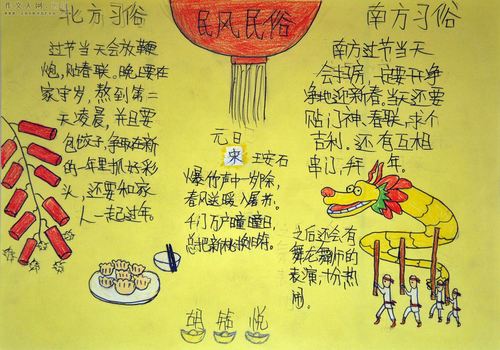 北方习俗
过节当天会放鞭
炮,贴春联。晚上要在
家守岁,熬到第二
天凌晨,并且要
包饺子,争取在新
的一年里抓好彩
头,还要和家
人一起过年。
民风民俗
元日
宋 王安石
爆竹声中一岁除,
春风送暖入屠苏。
千门万户曈曈日,
总把新桃换旧符。
胡 悦
南方习俗
南方过节当天
会扫房,一定要干净
净地迎新春。当天还要
贴门神、春联,求个
吉利。还有互相
串门,拜年。
之后还会有
舞龙舞师的
表演,十分热
闹。